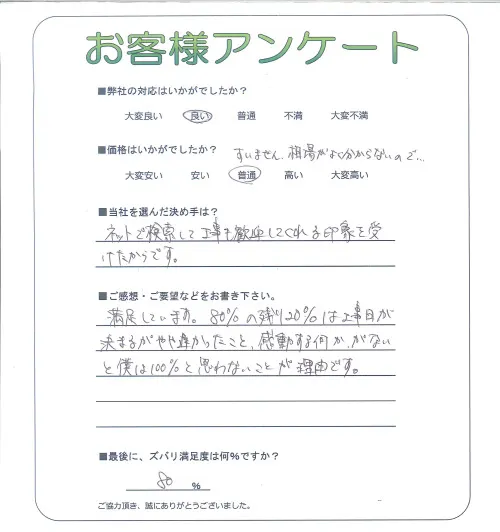 お客様アンケート
■弊社の対応はいかがでしたか?
大変良い 良い 普通 不満 大変不満
■価格はいかがでしたか? すいません、相場がよく分からないので…
大変安い 安い 普通 高い 大変高い
■当社を選んだ決め手は?
ネットで検索して工事を歓迎してくれる印象を受
けたからです。
■ご感想・ご要望などをお書き下さい。
満足しています。80%の残り20%は工事日が
決まるがやや遅かったこと、感動する何か、がない
と僕は100%と思わないことが理由です。
■最後に、ズバリ満足度は何%ですか?
80 %
ご協力頂き、誠にありがとうございました。